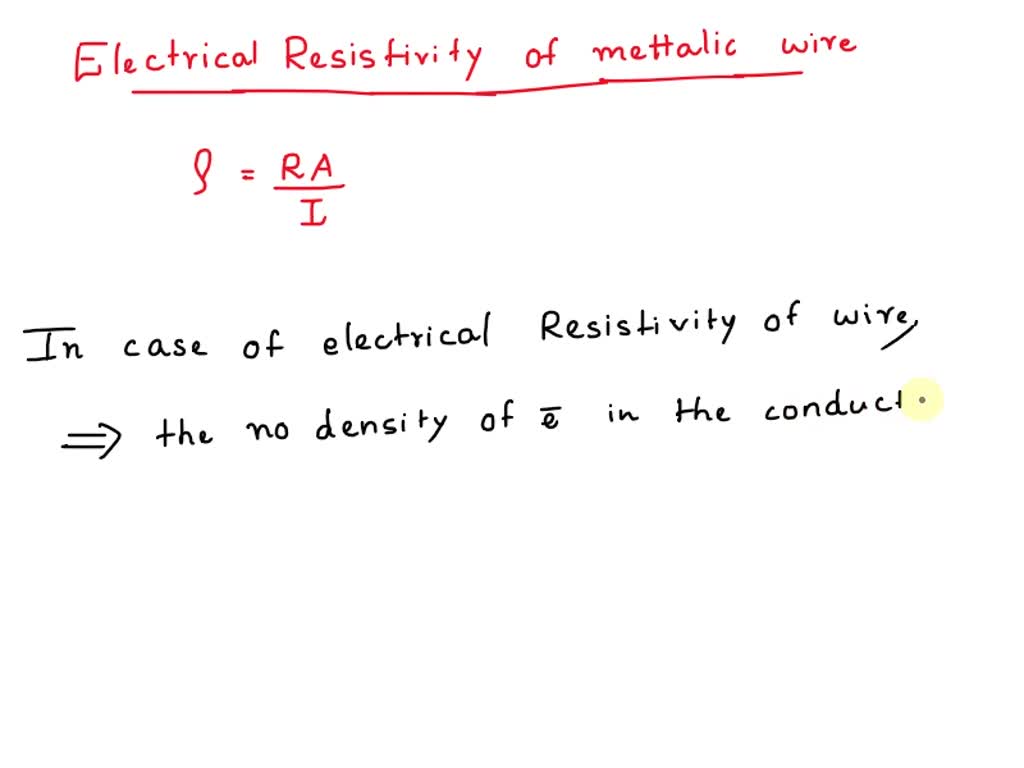 Electrical Resistivity of mettalic wire
ρ = RA / I
In case of electrical Resistivity of wire,
⇒ the no density of e̅ in the conduct